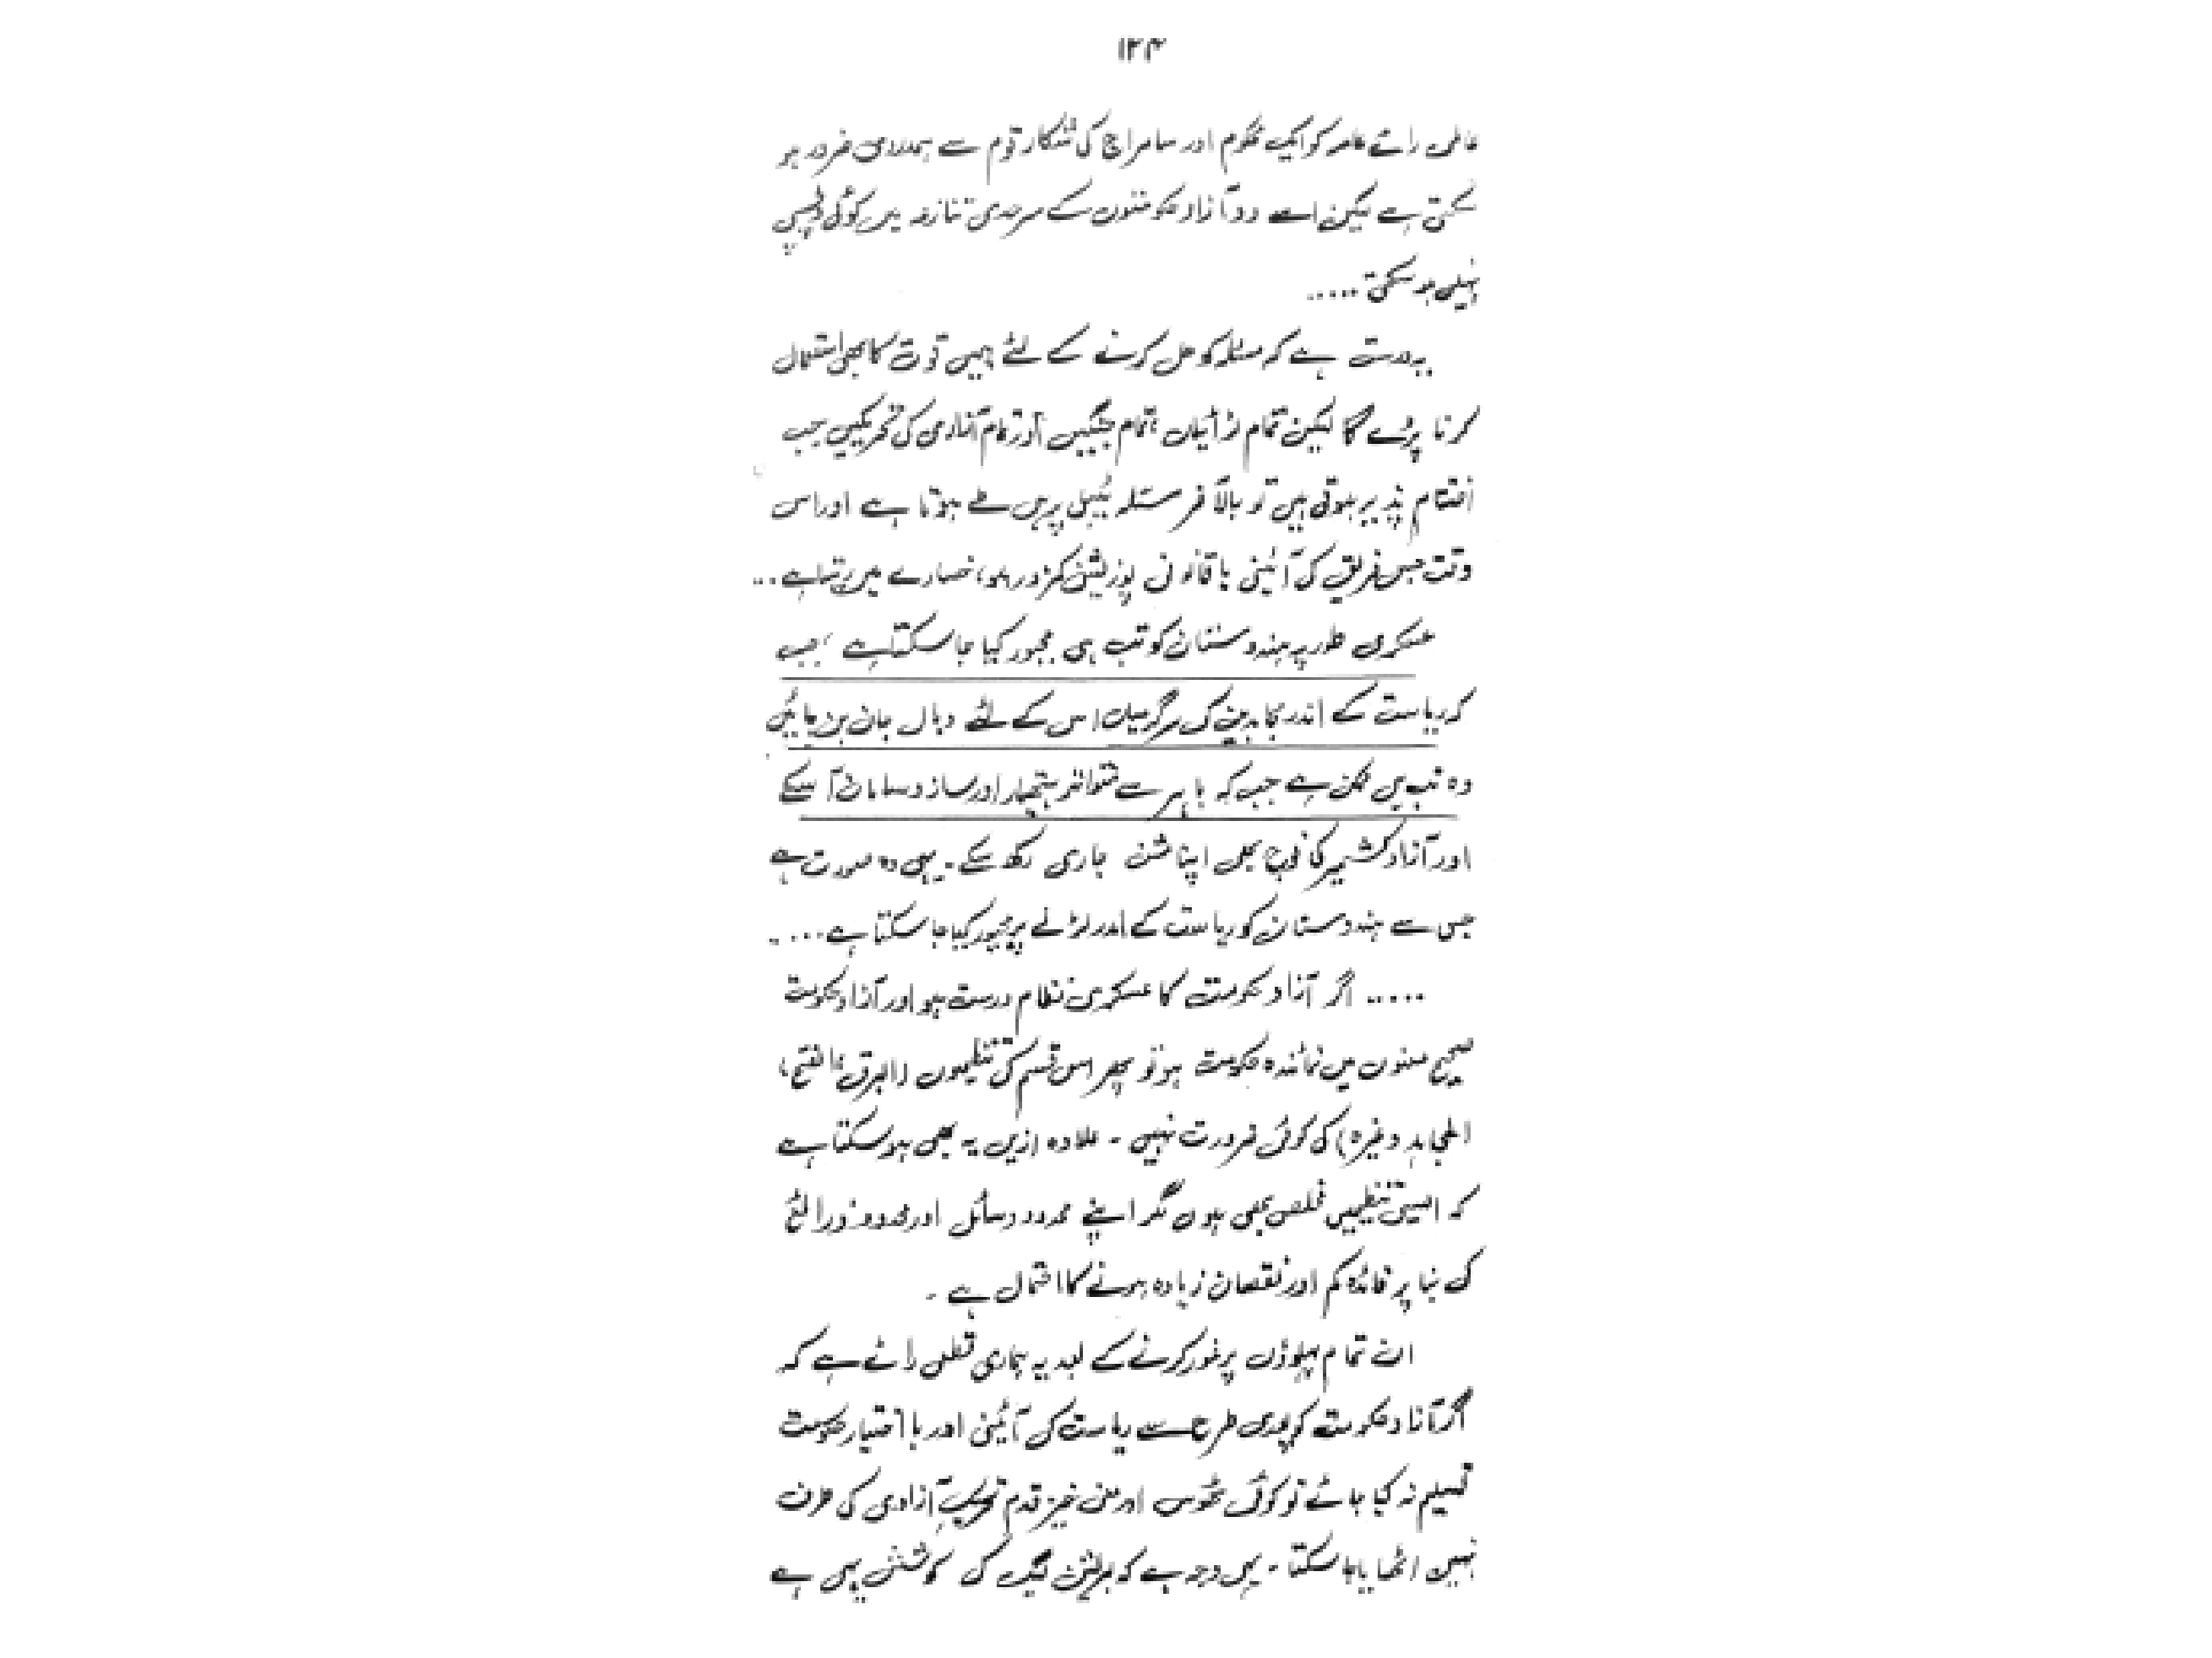 ۱۲۴
عالمی رائے عامہ کو ایک محکوم اور سامراج کی شکار قوم سے ہمدردی ضرور ہو
سکتی ہے لیکن اسے دو آزاد حکومتوں کے سرحدی تنازعہ میں کوئی دلچسپی
نہیں ہو سکتی .....
یہ درست ہے کہ مسئلہ کو حل کرنے کے لئے ہمیں قوت کا بھی استعمال
کرنا پڑے گا لیکن تمام لڑائیاں، تمام جنگیں اور تمام آزادی کی تحریکیں جب
اختتام پذیر ہوتی ہیں تو بالآخر مسئلہ ٹیبل پر ہی طے ہوتا ہے اور اس
وقت جس فریق کی آئینی یا قانونی پوزیشن کمزور ہو، خسارے میں رہتا ہے ...
عسکری طور پر ہندوستان کو تب ہی مجبور کیا جا سکتا ہے، جب
کہ ریاست کے اندر مجاہدین کی سرگرمیاں اس کے لئے وبال جان بن جائیں
وہ تب ہی ممکن ہے جب کہ باہر سے متواتر ہتھیار اور ساز و سامان آ سکے
اور آزاد کشمیر کی فوج بھی اپنا مشن جاری رکھ سکے۔ یہی وہ صورت ہے
جس سے ہندوستان کو ریاست کے اندر لڑانے پر مجبور کیا جا سکتا ہے .....
..... اگر آزاد حکومت کا عسکری نظام درست ہو اور آزاد حکومت
صحیح معنوں میں نمائندہ حکومت ہو تو پھر اس قسم کی تنظیموں (البرق، الفتح،
المجاہد وغیرہ) کی کوئی ضرورت نہیں ۔ علاوہ ازیں یہ بھی ہو سکتا ہے
کہ ایسی تنظیمیں مخلص بھی ہوں مگر اپنے محدود وسائل اور محدود ذرائع
کی بنا پر فائدہ کم اور نقصان زیادہ ہونے کا احتمال ہے ۔
ان تمام پہلوؤں پر غور کرنے کے بعد یہ ہماری قطعی رائے ہے کہ
اگر آزاد حکومت کو پوری طرح سے ریاست کی آئینی اور با اختیار حکومت
تسلیم نہ کیا جائے تو کوئی ٹھوس اور معنی خیز قدم تحریکِ آزادی کی طرف
نہیں اٹھایا جا سکتا ۔ یہی وجہ ہے کہ لبریشن لیگ کی کوشش یہی ہے